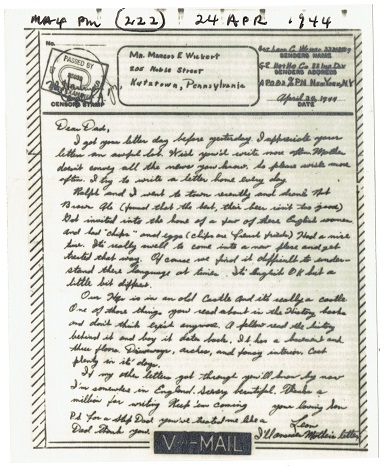 MA4 PM (222) 24 APR 1944
No.
PASSED BY
CENSOR'S STAMP
Mr. Marcus E Wickert
205 Noble Street
Kutztown, Pennsylvania
SENDER'S NAME
SENDER'S ADDRESS
New York, NY
April 20, 1944
DATE
Dear Dad,
I got your letter day before yesterday I appreciate your
letters an awful lot. Wish you'd write more often Mother
doesn't convey all the news you know. So please write more
often. I try to write a letter home every day.
Ralph and I went to town recently and drank Nut
Brown Ale (found that the best, their beer isn't too good)
Got invited into the home of a pair of these English women
and had "chips" and eggs (chips are french fried) Had a nice
time. It's really swell to come into a new place and get
treated that way. Of course we find it difficult to under-
stand there language at times. It's English OK but a
little bit different.
Our Hqs is in an old Castle and it's really a castle
One of those things you read about in the History books
and don't think exist anymore. A fellow read the history
behind it and boy it dates back. It has a basement and
three floors. Driveways, arches, and fancy interior. Cost
plenty in it's day.
If my other letters got through you'll know by now
I'm somewhere in England. Scenery beautiful. Thanks a
million for writing Keep 'em coming your loving Son
P.S. For a Step Dad you've treated me like a Leon
Dad. Thank you. I'll answer Mother's letter
V···-MAIL